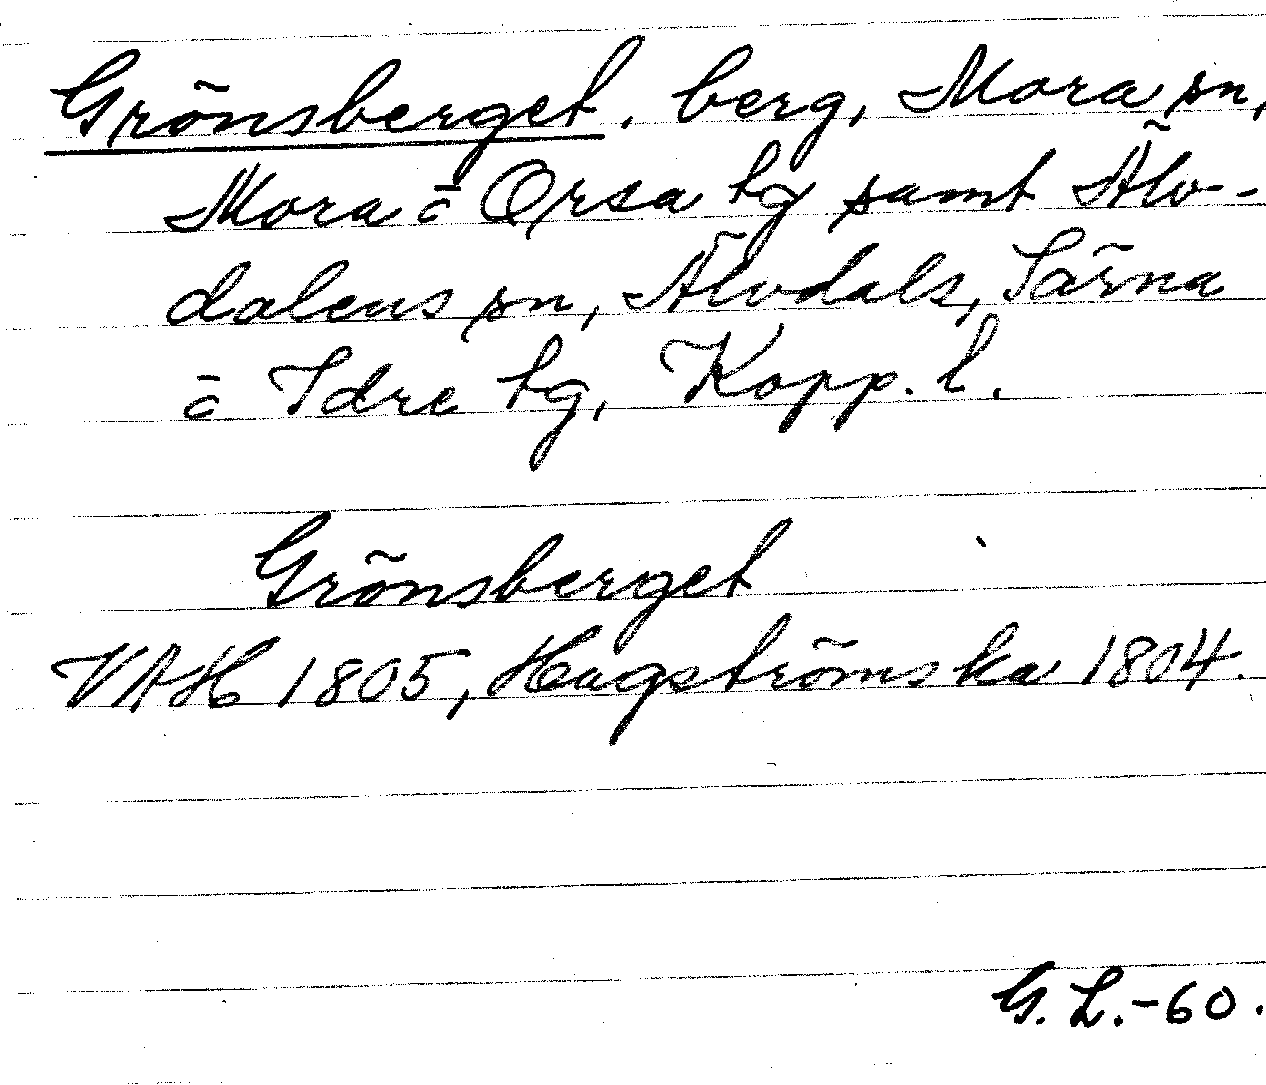 Grönsberget, berg, Mora sn,
Mora o Orsa tg samt Älv-
dalens sn, Älvdals, Särna
o Idre tg, Kopp. l.
Grönsberget
VAH 1805, Hagströmska 1804.
G. L. -60.